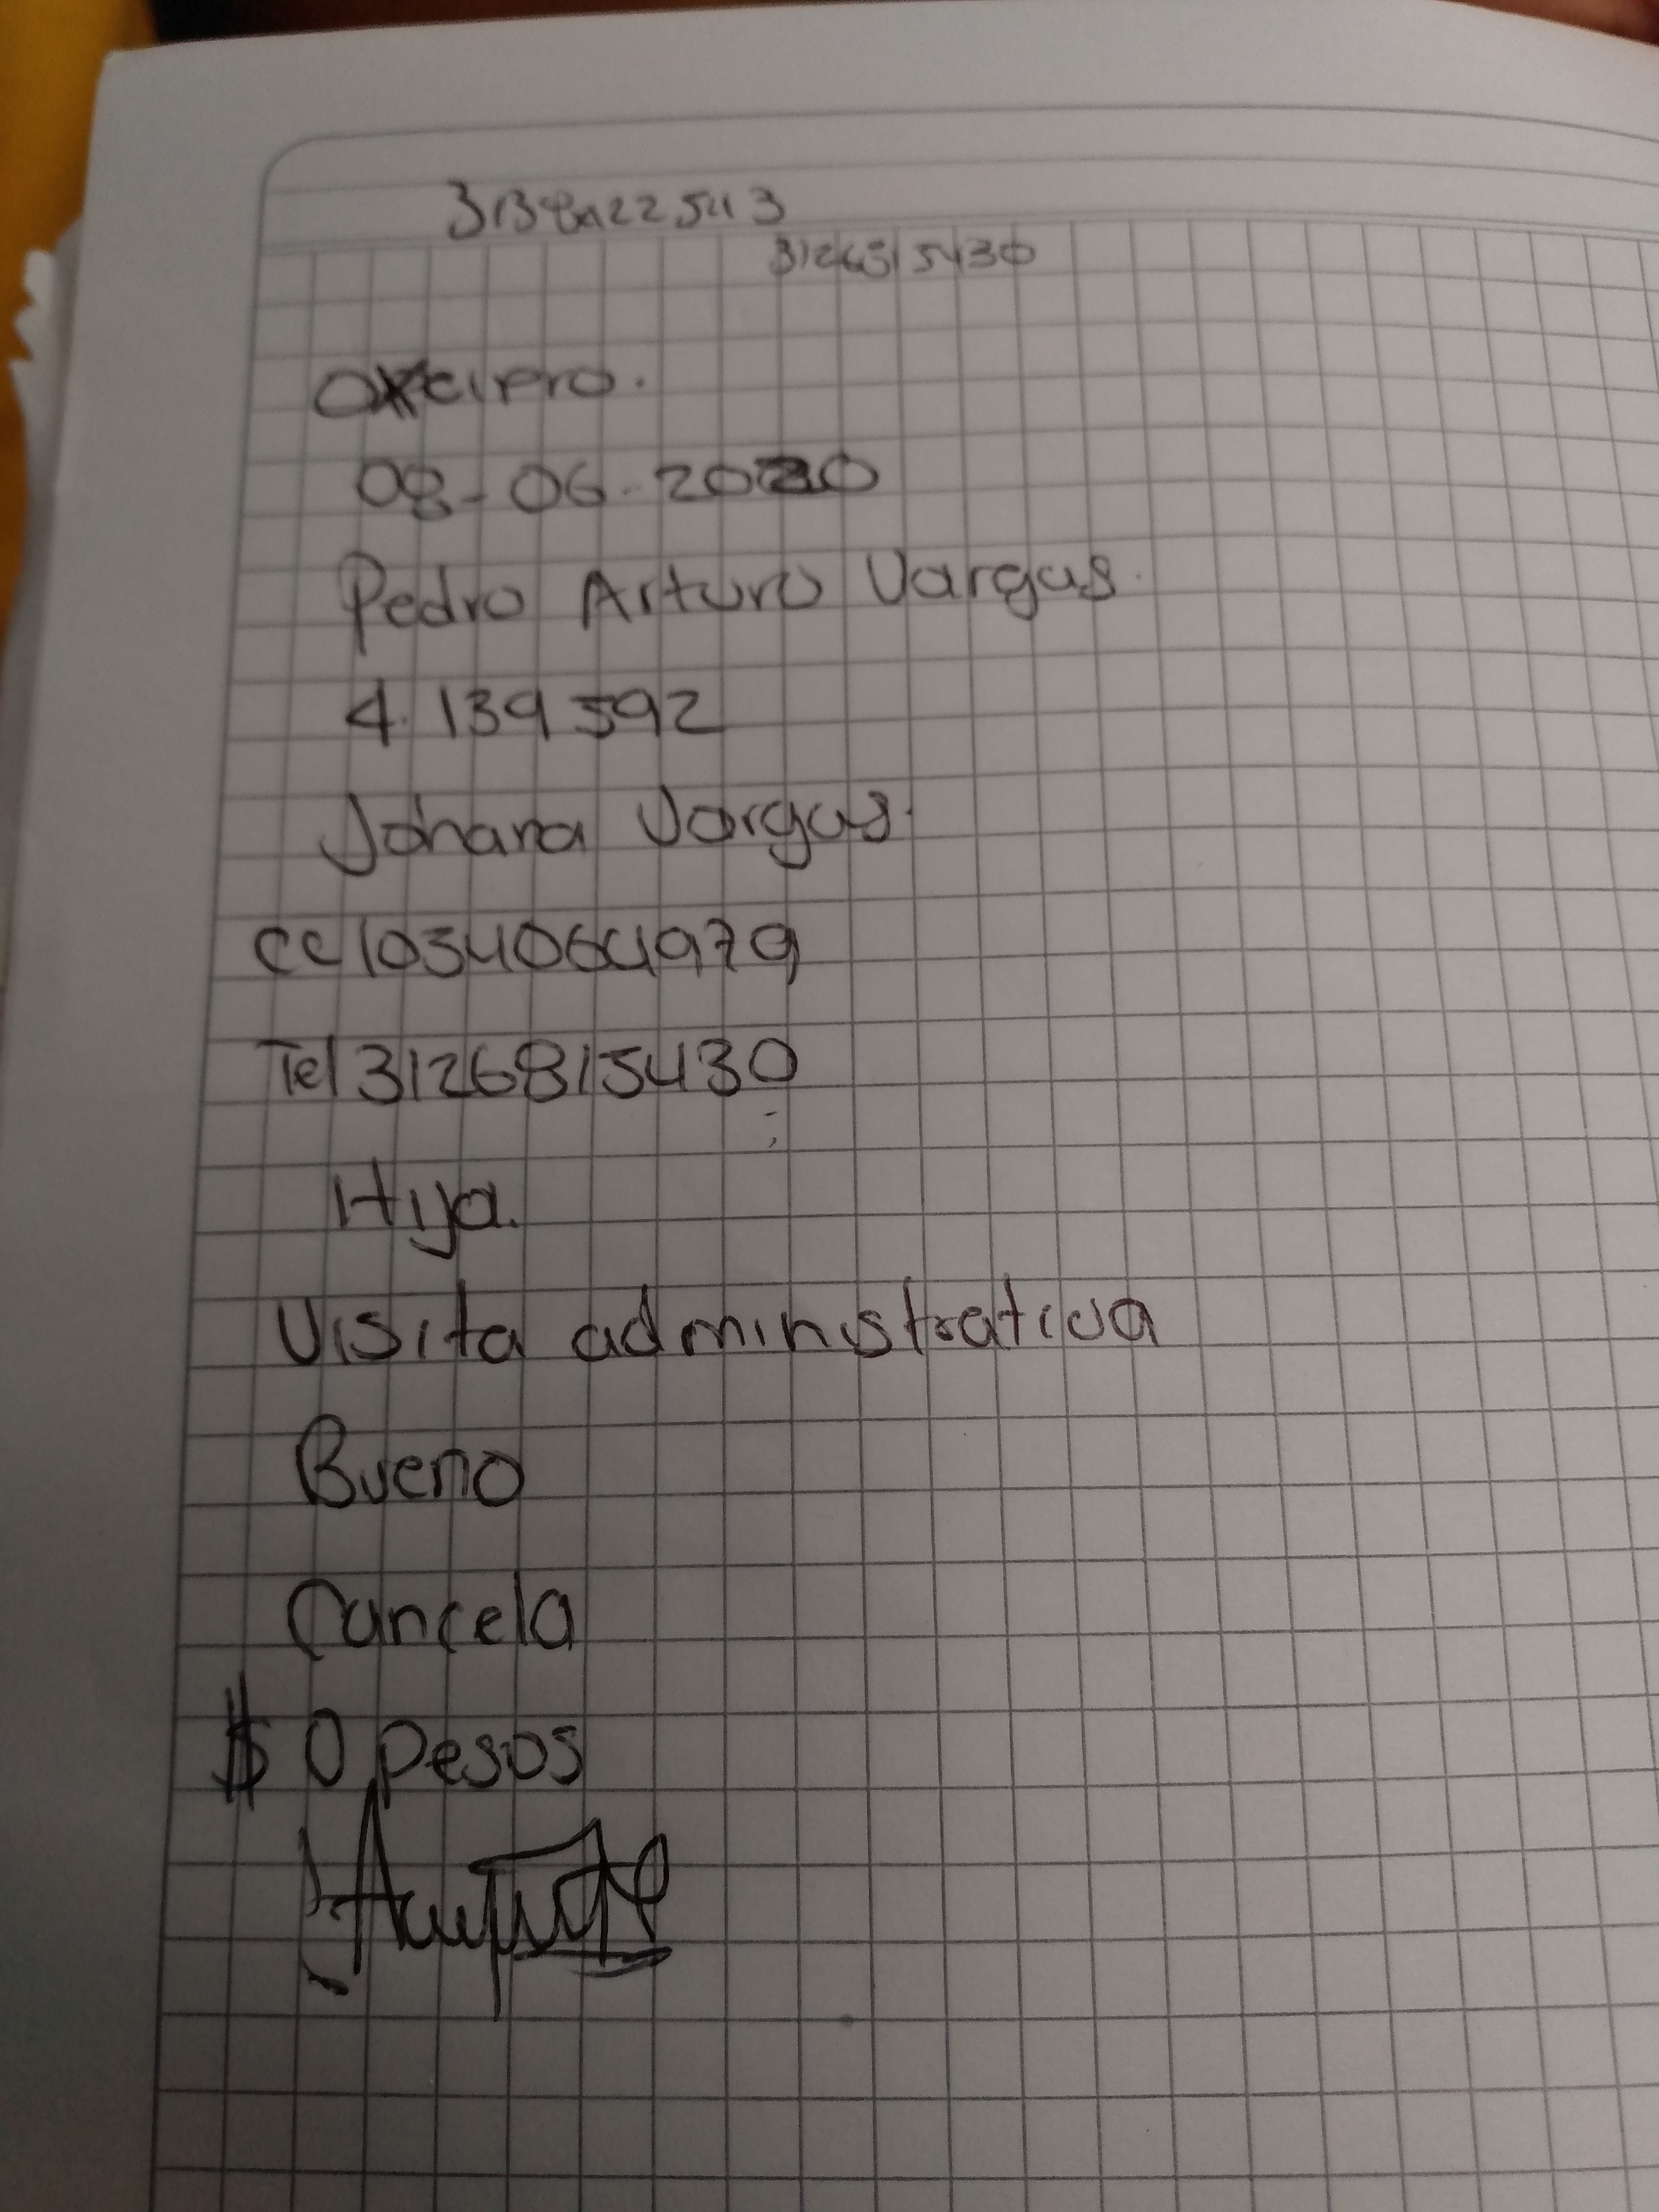 3126815430
08-06-2020
Pedro Arturo Vargas.
4.139592
Johana Vargas.
CC 1034064979
Tel 3126815430
Hija.
Visita administrativa
Bueno
Cancela
$ 0 pesos